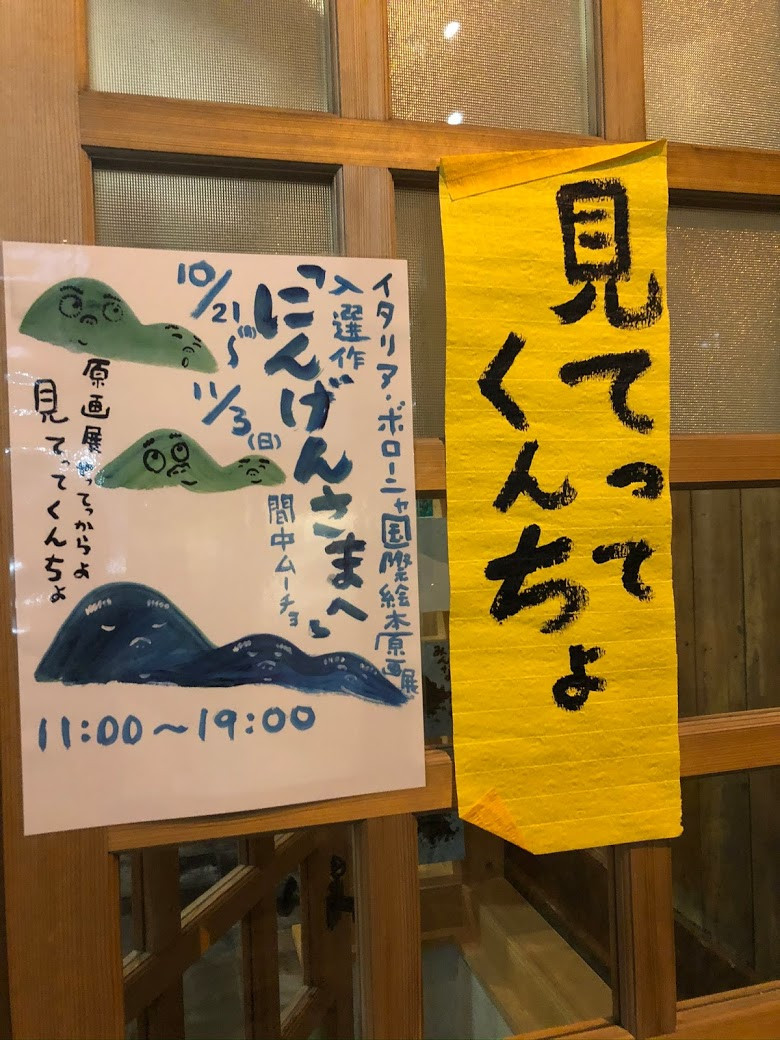 見てって
くんちょ
イタリア・ボローニャ国際絵本原画展
入選作
「にんげんさまへ」
間中ムーチョ
10/21(月)
〜
11/3(日)
原画展やってっからよ
見てってくんちょ
11:00〜19:00